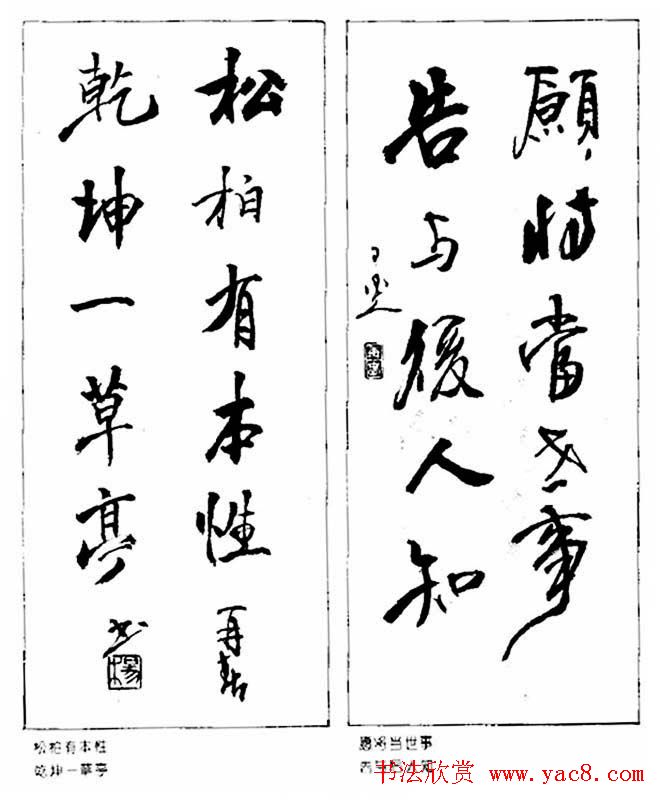 願將當世事
告与後人知
松柏有本性
乾坤一草亭
松柏有本性
乾坤一草亭
愿将当世事
告与后人知
书法欣赏 www.yac8.com